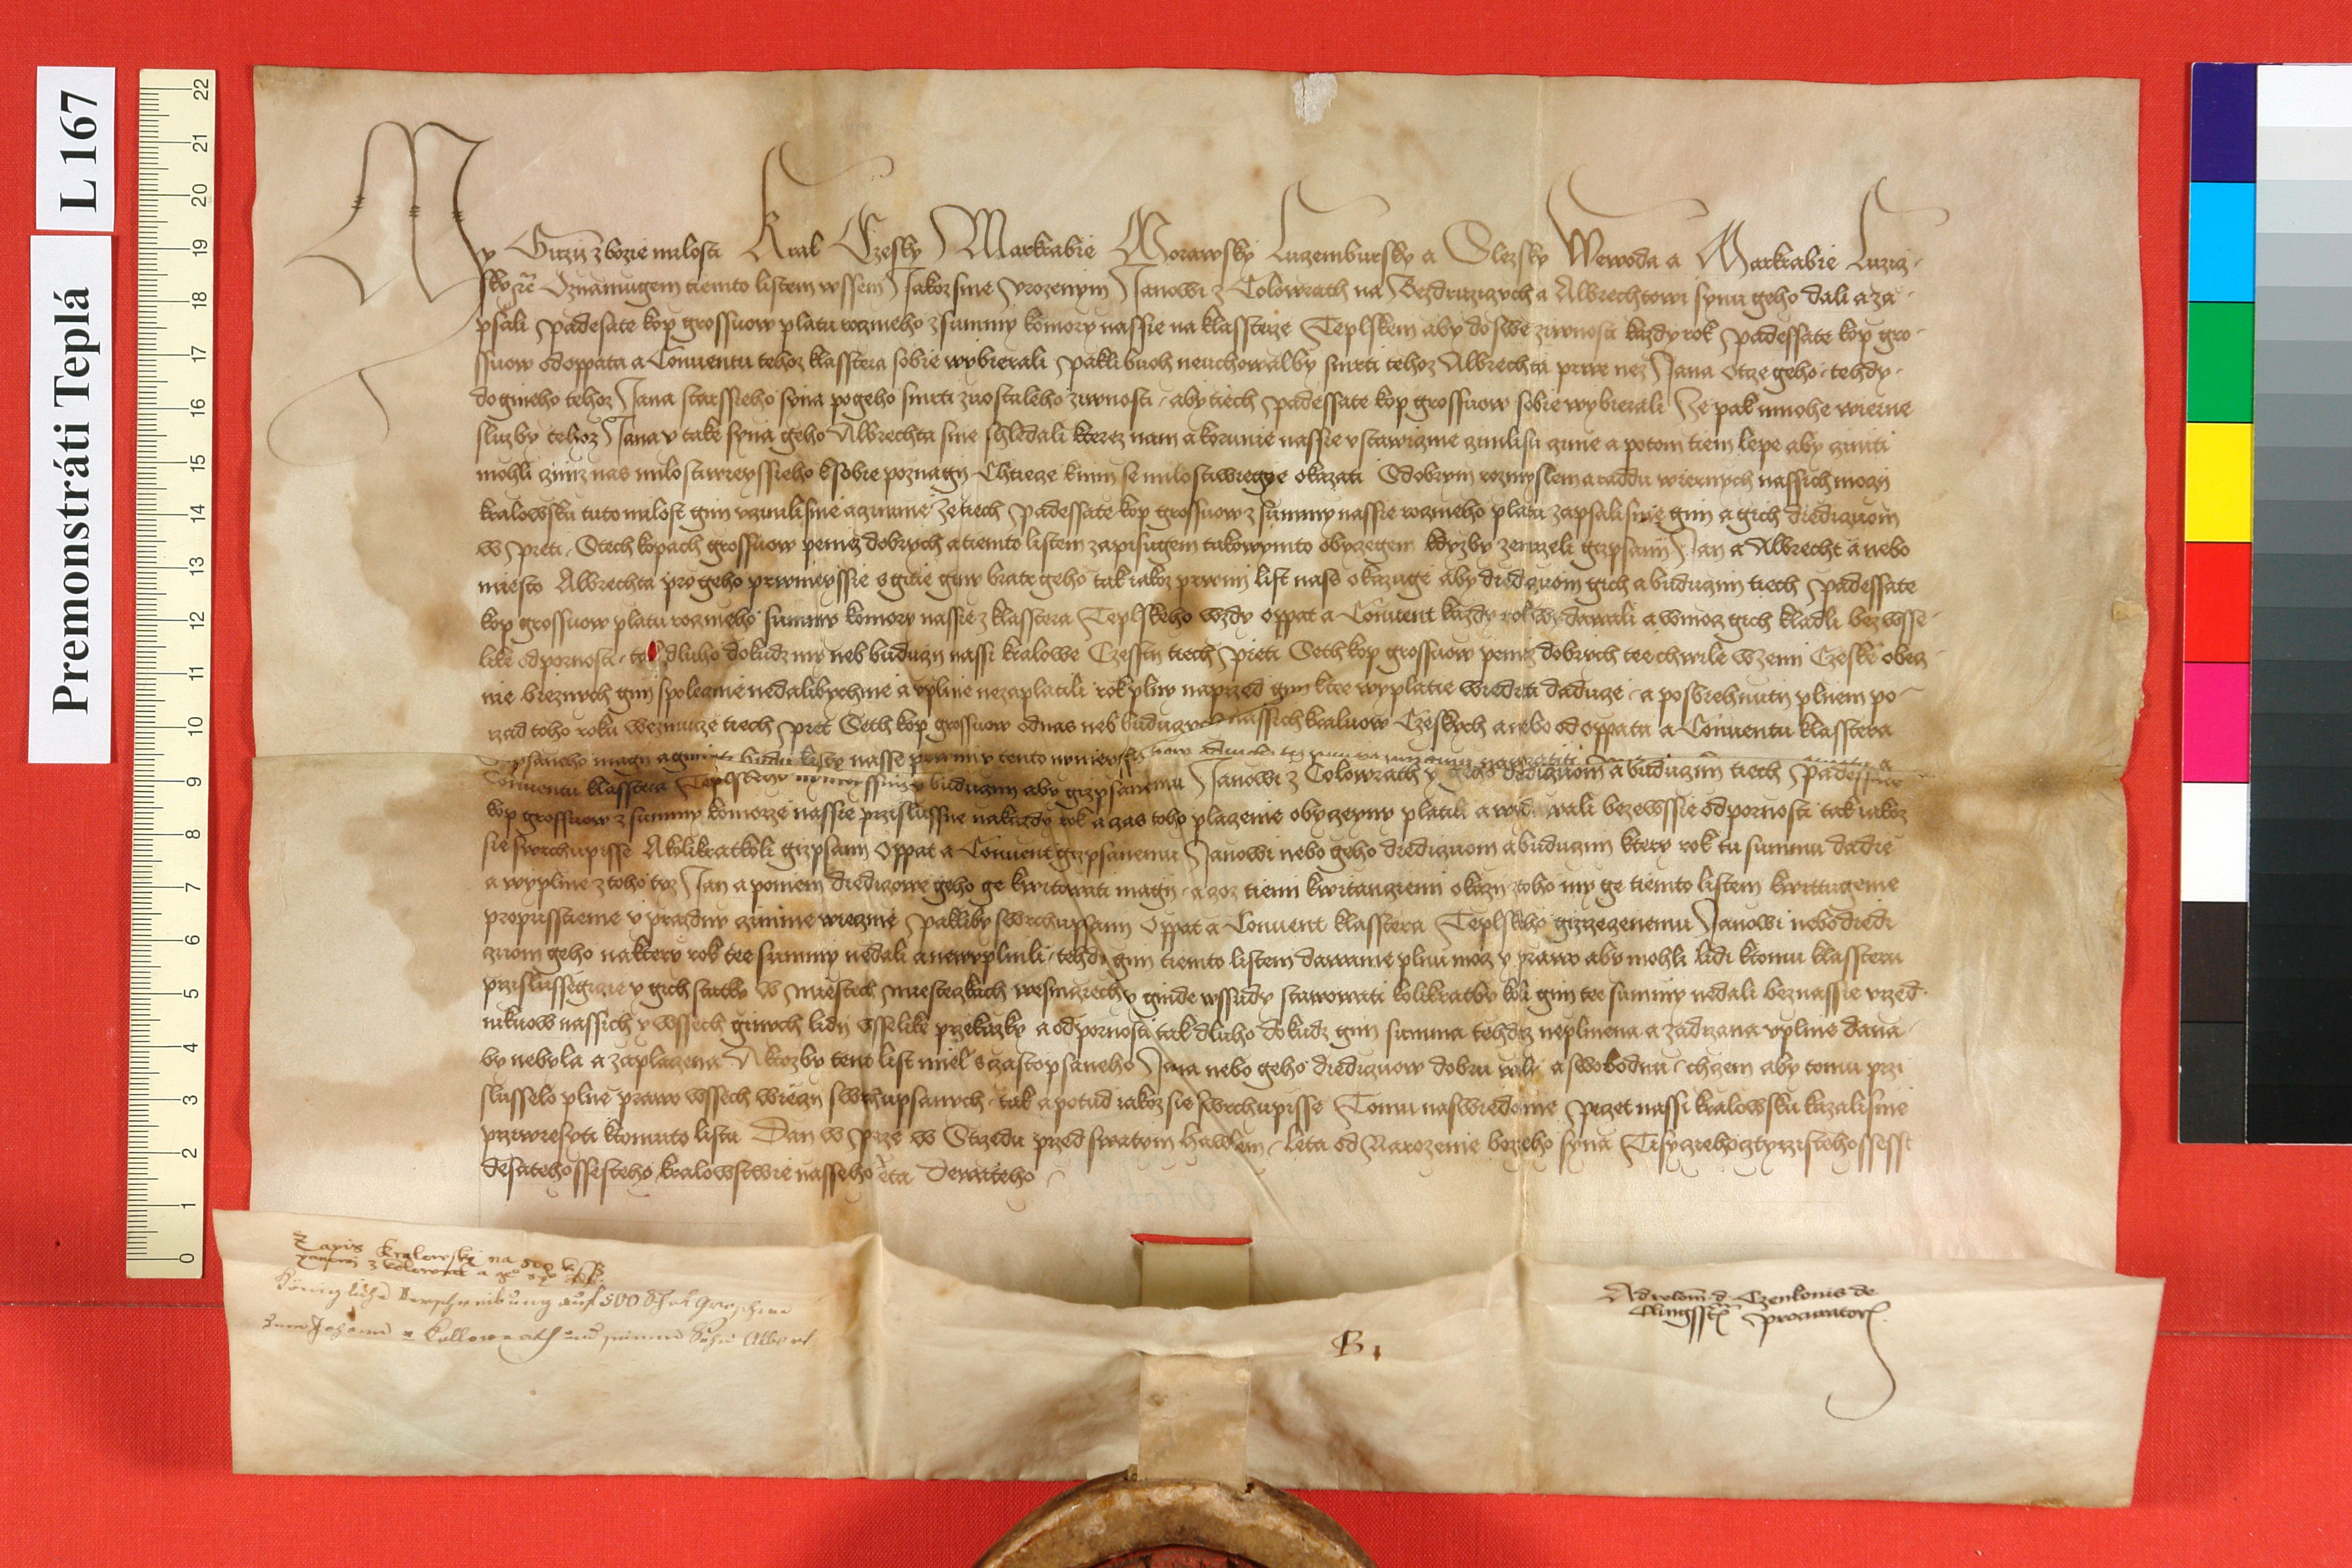 My Girzij z bozie milosti Kral Czesky Markrabie Morawsky Luzembursky a Slezsky Wewoda a Markrabie Luziz-
sky ꝛc̃ Oznamugem tiemto listem wssem Jakoz sme Vrozenym Janowi z Colowrath na Bezdruziczych a Albrechtowi synu geho dali a za-
psali padesate kop grossuow platu roczneho z summy komory nassie na klassterze Teplskem aby do swe ziwnosti kazdy rok padessate kop gro-
ssuow od oppata a Conuentu tehoz klasstera sobie wybierali Pakli buoh neuchowalby smrti tehoz Albrechta prwe nez Jana otcze geho tehdy
do gineho tehoz Jana starssieho syna po geho smrti zuostaleho ziwnosti aby tiech padessate kop grossuow sobie wybierali Ze pak mnohe wierne
sluzby tehoz Jana y take syna geho Albrechta sme shledali kterez nam a korunie nassie vstawiczne czinili su czinie a potom tiem lepe aby cziniti
mohli czimz nas milostiwieyssieho k sobie poznagij Chtiecze k nim se milostiwiegie okazati S dobrym rozmyslem a raddu wiernych nassich moczij
kralowsku tuto milost gim vczinili sme a czinime ze tiech padessate kop grossuow z summy nassie roczneho platu zapsali sme gim a gich diediczuom
w pieti Stech kopach grossuow peniez dobrych a tiemto listem zapisugem takowymto obyczegem kdyzby zemrzeli gizpsanij Jan a Albrecht a nebo
miesto Albrechta przi geho prwnieyssie sgitie giny bratr geho tak iakoz prwnij list nass okazuge aby diediczuom gich a buduczim tiech padessate
kop grossuow platu roczneho summy komory nassie z klasstera Teplskeho wzdy oppat a Conuent kazdy rok wydawali a w mocz gich kladli bez wsse-
like odpornosti tak dluho dokudz my neb buduczij nassi kralowe Czessti tiech pieti Seth kop grossuow peniez dobrych tee chwile w zemi Czeske obecz-
nie bieznych gim spolecznie nedalibychme a vplnie nezaplatili rok plny naprzed gim k tee wyplatie wiedieti daducze a po sbiehnutij plnem po-
rzad toho roku wezmucze tiech piet Seth kop grossuow od nas neb buduczych nassich kraluow Czeskych a nebo od oppata a Conuentu klasstera
psaneho magij a budu listy nasse prwni y tento nawratiti
Conuentu klasstera Teplskeho nynieyssim y buduczim aby gizpsanemu Janowi z Colowrath y geho diediczuom a buduczim tiech padessate
kop grossuow z summy komorze nassie przislussne na kazdy rok a czas toho placzenie obyczeyny platili a wydawali bezewssie odpornosti tak iakoz
sie swrchupisse A kolikratkoli gizpsanij Oppat a Conuent gizpsanemu Janowi nebo geho diediczuom a buduczim ktery rok tu summu dadie
a wyplnie z toho toz Jan a po niem diediczowe geho ge kwitowati magij a coz tiemi kwitanciemi okazij z toho my ge tiemto listem kwittugeme
propusstieme y prazdny czinime wiecznie Pakliby swrchupsanij Oppat a Conuent klasstera Teplskeho gizrzeczenemu Janowi nebo diedi
czuom geho na ktery rok tee summy nedali a newyplnili tehdy gim tiemto listem dawame plnu mocz y prawo aby mohli lidi k tomu klassteru
przislussegiczie y gich statky w miestech miesteczkach wesniczech y ginde wssudy stawowati kolikratby koli gim tee summy nedali bez nassie vrzed-
nikuow nassich y wssech ginych lidij wsselike przekazky a odpornosti tak dluho dokudz gim summa tehdaz neplniena a zadrzana vplnie dana
by nebyla a zaplaczena A ktozby tento list miel s czastopsaneho Jana nebo geho diediczuow dobru woli a swobodnu chczem aby tomu przi
slusselo plne prawo wssech wieczij swrchupsanych tak a potud iakoz sie swrchupisse Tomu na swiedomie Peczet nassi kralowsku kazali sme
przywiesyti k tomuto listu Dan w Praze w Strzedu przed swatym Hawlem Leta od Narozenie bozieho syna Tisyczieho cztyrzisteho ssesst
desateho ssesteho kralowstwie nasseho leta Dewateho
Zapis Kralowsky na 500 k ss
panom z Kolowrat a
Königliche Verschreibung auf 500 Schok Groschen
dem Johann v Kollowrath und seinem Sohn Albert
B 1
Ad relacõm d Czenkonis de
Clingsst̃ procuratoris
Premonstráti Teplá L 167
0 1 2 3 4 5 6 7 8 9 10 11 12 13 14 15 16 17 18 19 20 21 22